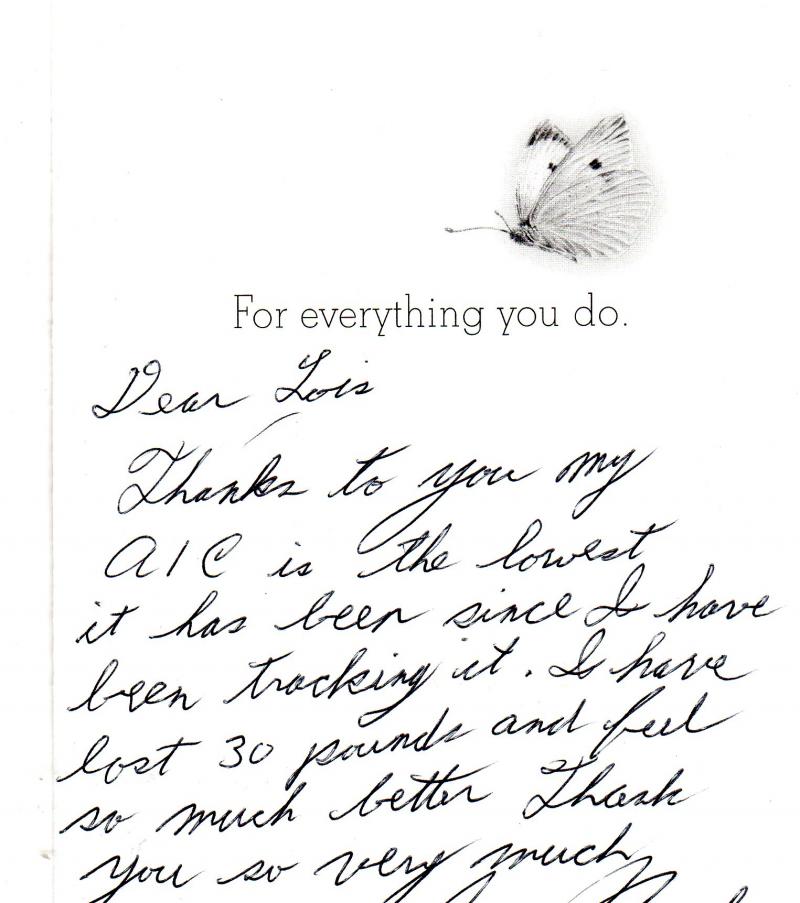 For everything you do.
Dear Lois
Thanks to you my
A1C is the lowest
it has been since I have
been tracking it. I have
lost 30 pounds and feel
so much better Thank
you so very much